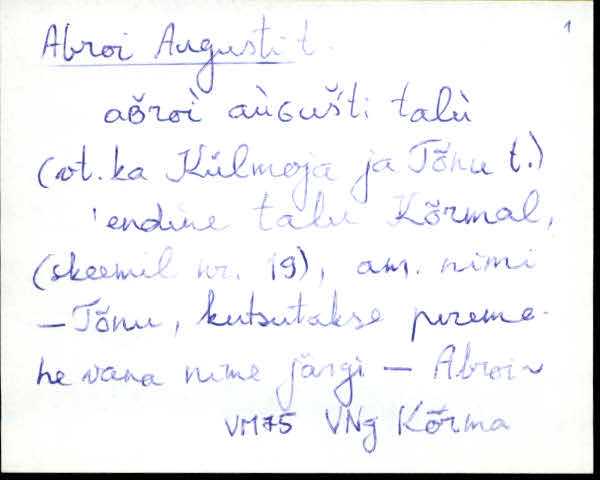 1
Abroi Augusti t.
aʙ̆roì aùɢušti talù
(vt. ka Külmoja ja Tõnu t.)
'endine talu Kõrmal,
(skeemil nr. 19), am. nimi
– Tõnu, kutsutakse pereme-
he vana nime järgi – Abroi~
VM75 VNg Kõrma